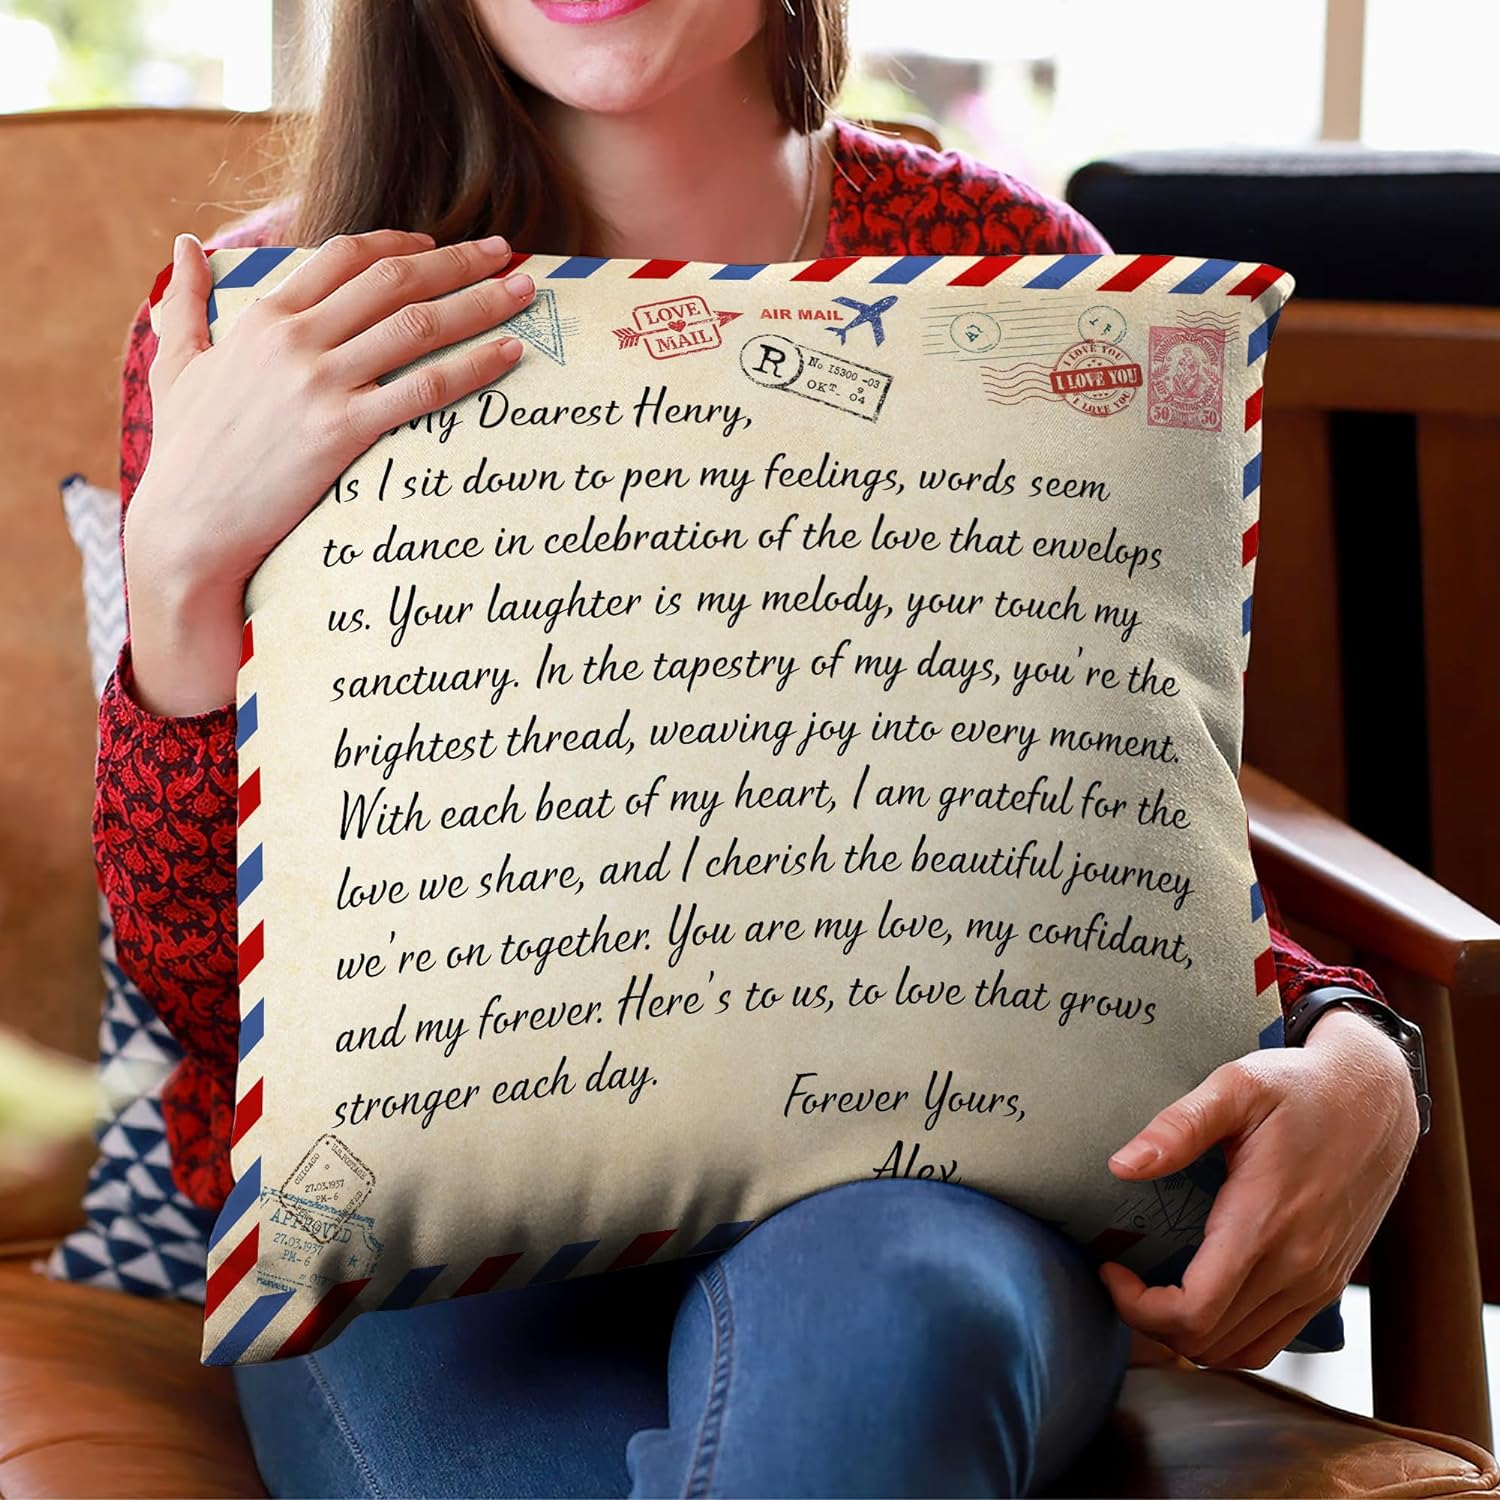 LOVE
MAIL
AIR MAIL
R
No 15300 -03
OKT. 9
04
I LOVE YOU
I LOVE YOU
I LOVE YOU
50 50
My Dearest Henry,
As I sit down to pen my feelings, words seem
to dance in celebration of the love that envelops
us. Your laughter is my melody, your touch my
sanctuary. In the tapestry of my days, you're the
brightest thread, weaving joy into every moment.
With each beat of my heart, I am grateful for the
love we share, and I cherish the beautiful journey
we're on together. You are my love, my confidant,
and my forever. Here's to us, to love that grows
stronger each day.
Forever Yours,
Alex
CHICAGO
U.S.POSTAGE
27.03.1937
PM-6
APPROVED
27.03.1937
PM-6